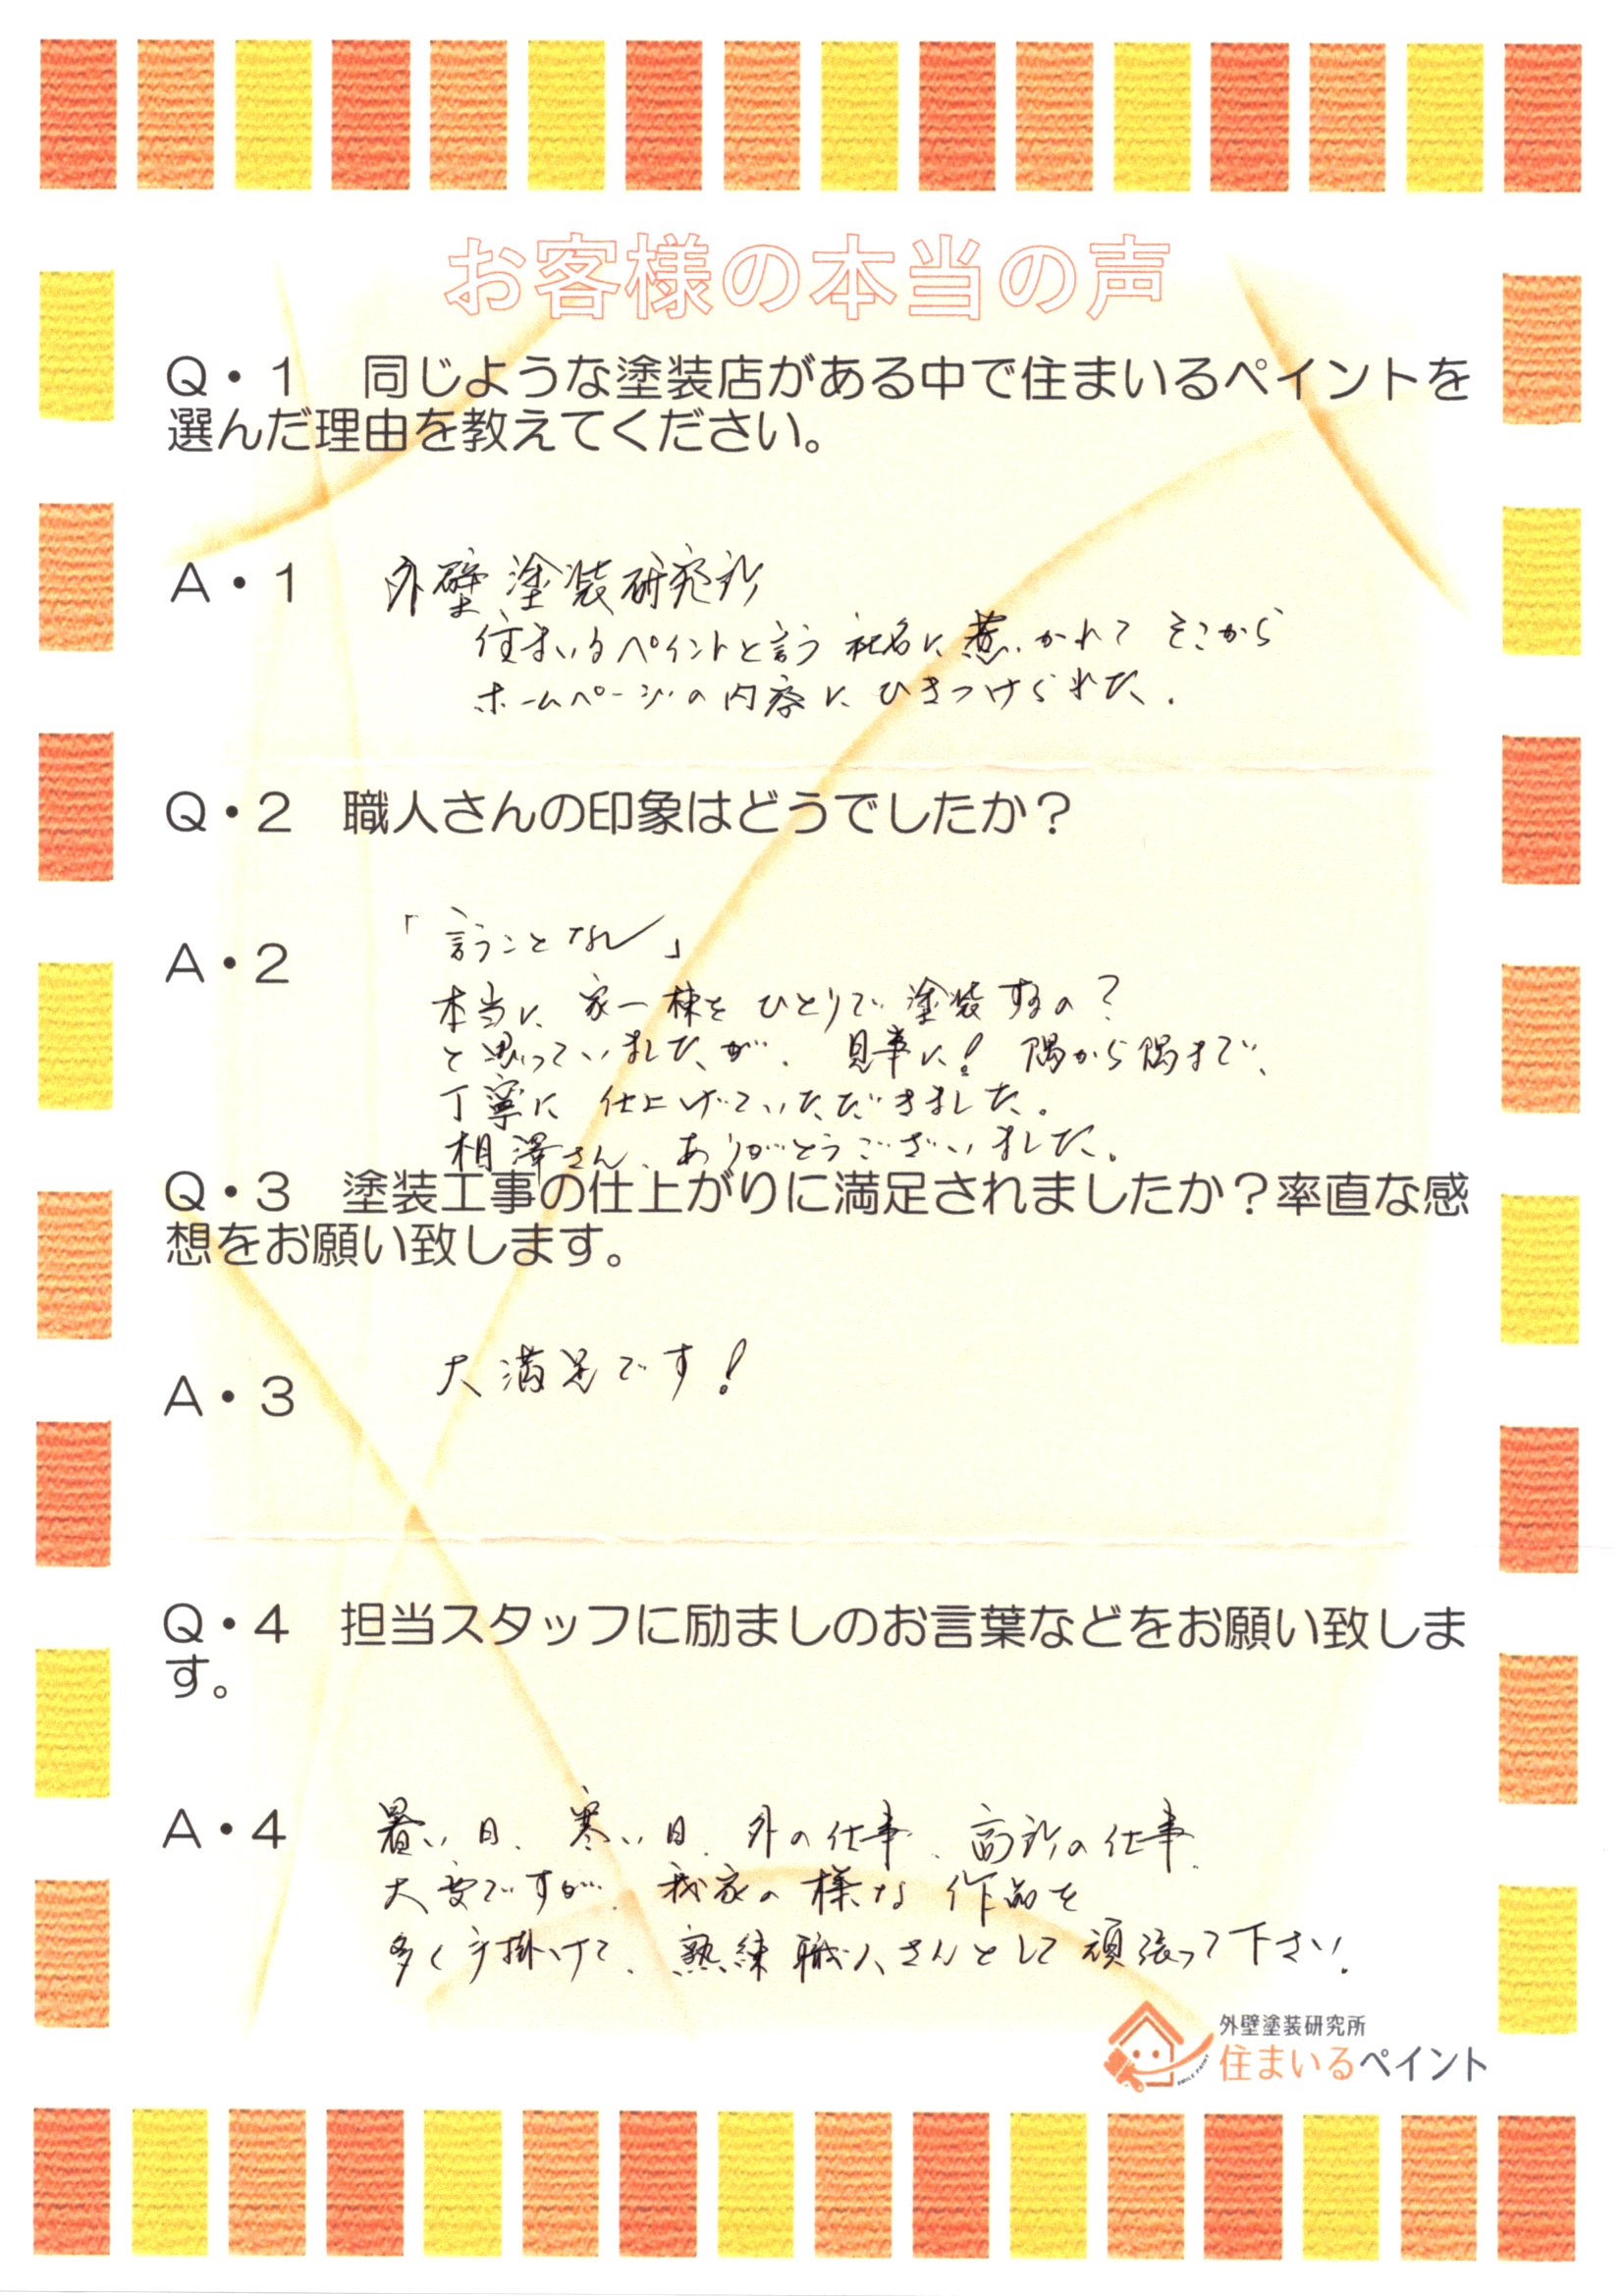 お客様の本当の声
Q・1　同じような塗装店がある中で住まいるペイントを
選んだ理由を教えてください。
A・1　外壁塗装研究所
住まいるペイントと言う社名に惹かれてそこから
ホームページの内容にひきつけられた.
Q・2　職人さんの印象はどうでしたか？
A・2　「言うことなし」
本当に家一棟をひとりで塗装するの？
と思っていましたが、見事に！隅から隅まで、
丁寧に仕上げていただきました。
相澤さん、ありがとうございました。
Q・3　塗装工事の仕上がりに満足されましたか？率直な感
想をお願い致します。
A・3　大満足です！
Q・4　担当スタッフに励ましのお言葉などをお願い致しま
す。
A・4　暑い日、寒い日、外の仕事、高所の仕事、
大変ですが、我家の様な作品を
多く手掛けて、熟練職人さんとして頑張って下さい.
外壁塗装研究所
住まいるペイント